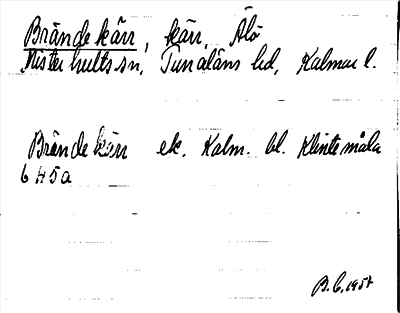 Brändekärr, kärr, Älö
Misterhults sn, Tunaläns hd, Kalmar l.
Brändekärr ek. Kalm. bl. Klintemåla
6 H 5 a
B.C. 1957